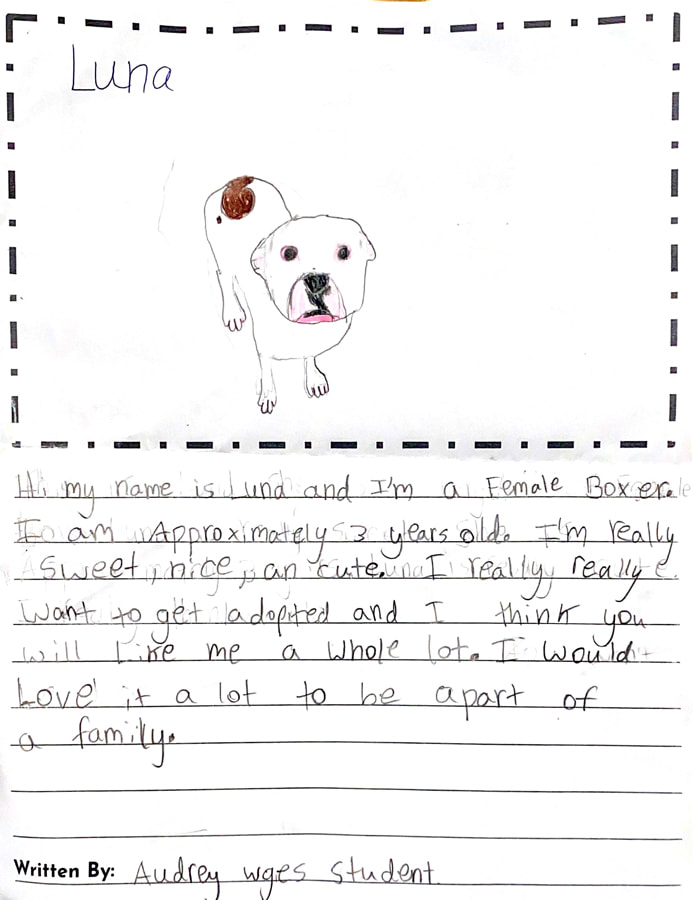 Luna
Hi, my name is Luna and I'm a Female Boxer.
I am Approximately 3 years old. I'm really
sweet, nice, an cute. I really, really
want to get adopted and I think you
will Like me a whole lot. I would
Love it a lot to be apart of
a family.
Written By: Audrey wges student